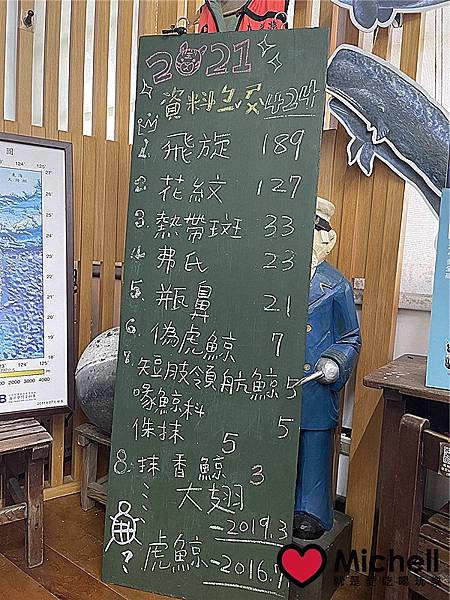 2021
資料
1. 飛旋 189
2. 花紋 127
3. 熱帶斑 33
4. 弗氏 23
5. 瓶鼻 21
6. 偽虎鯨 7
7. 短肢領航鯨 5
喙鯨科 5
侏抹 5
8. 抹香鯨 3
大翅
-2019.3
? 虎鯨 -2016.7
Michell
就是愛吃喝玩樂